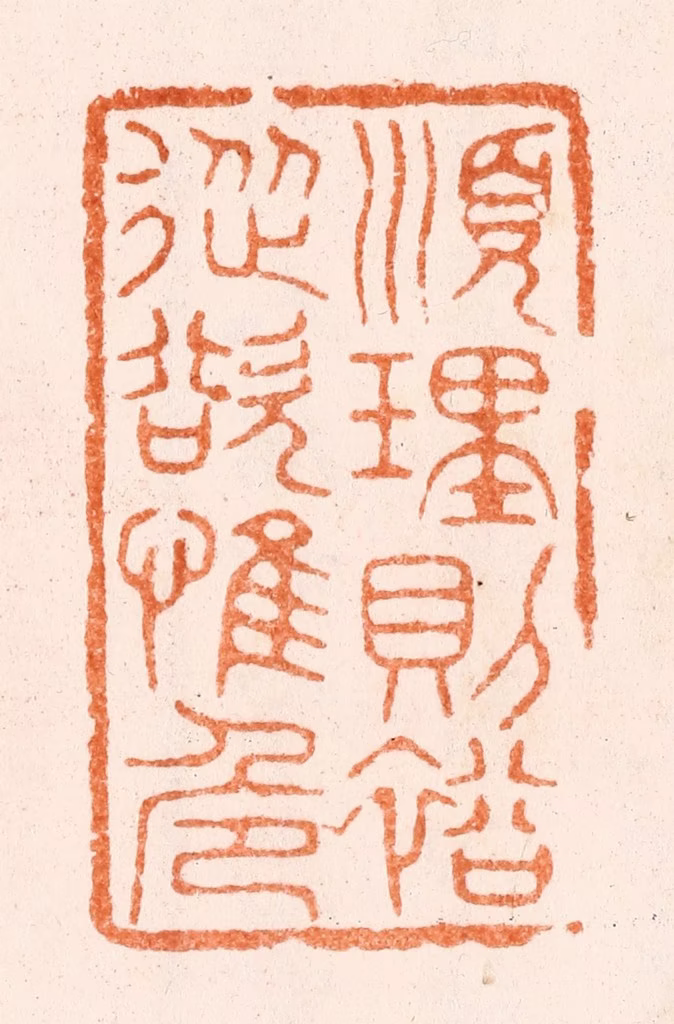 順理則裕
從欲惟危